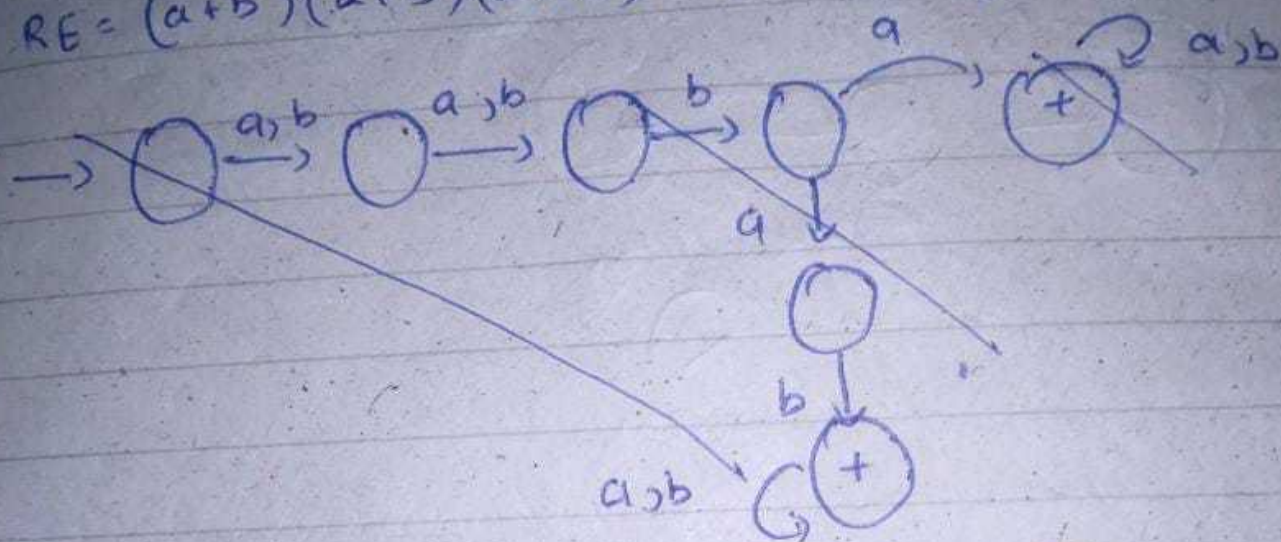 RE = (a+b)
a, b
a, b
b
a
a, b
+
a
b
+
a, b